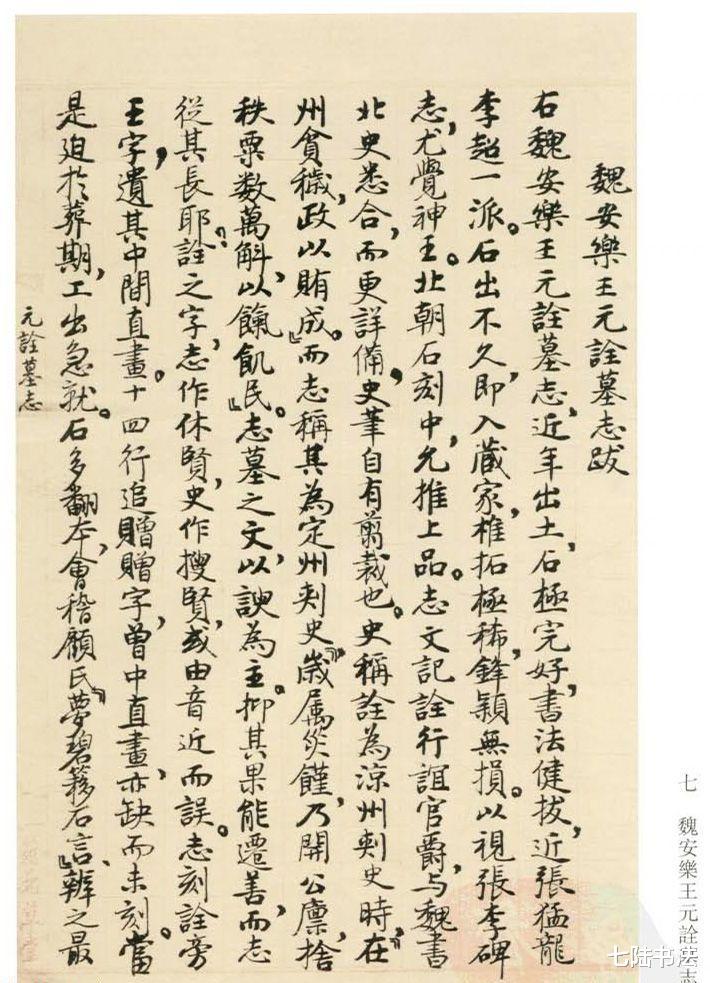 魏安樂王元詮墓志跋
右魏安樂王元詮墓志，近年出土，石極完好，書法健拔，近張猛龍
李超一派。石出不久即入藏家，椎拓極稀，鋒穎無損。以視張李碑
志，尤覺神王。北朝石刻中，允推上品。志文記詮行誼官爵，與魏書
北史悉合，而更詳備，史筆自有剪裁也。史稱詮為涼州刺史時，在『
州貪穢，政以賄成。』而志稱其為定州刺史，『歲屬災饉，乃開公廩，捨
秩粟數萬斛，以餼飢民。』志墓之文，以諛為主。抑其果能遷善，而志
從其長耶。詮之字，志作休賢，史作搜賢，或由音近而誤。志刻詮旁
王字，遺其中間直畫。十四行追贈贈字，曾中直畫，亦缺而未刻。當
是迫於葬期，工出急就。石多翻本，會稽顧氏『夢碧簃石言』、辨之最
元詮墓志
七 魏安樂王元詮墓志
七陆书法